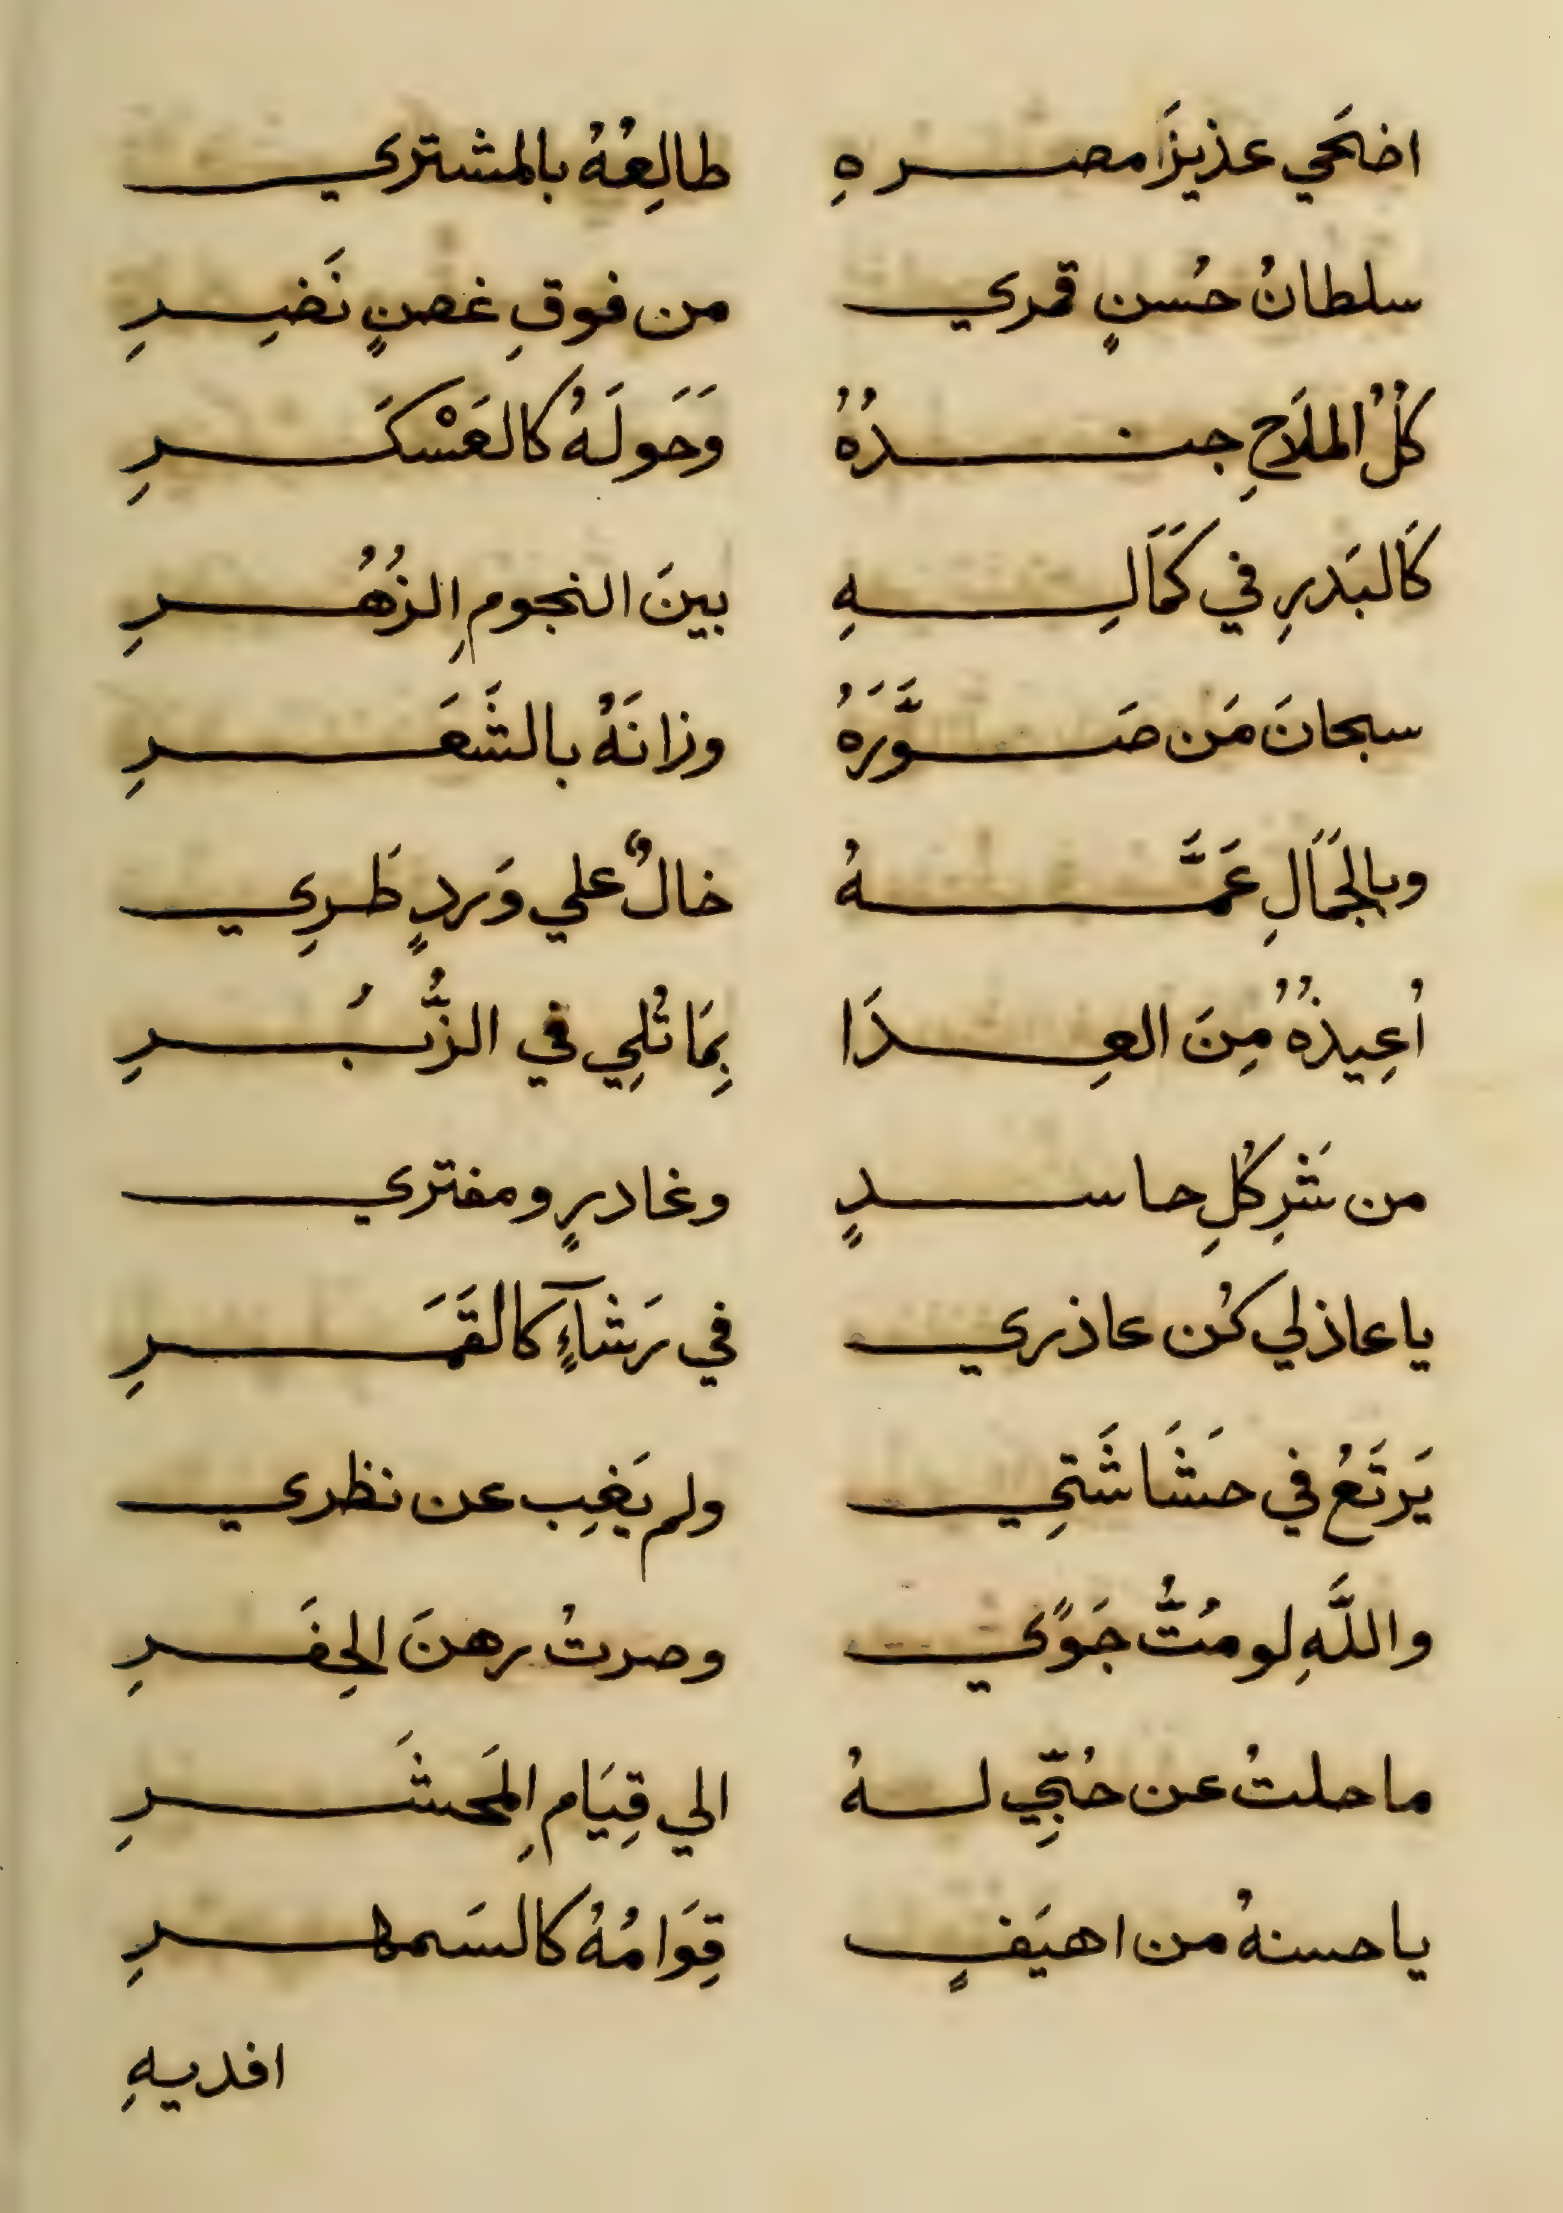 اضحَي عذيزَا مصرهِ طالِعُهُ بالمشتري
سلطانُ حُسنٍ قمري من فوقِ غصنٍ نَضِرِ
كُلُ الملَاحِ جندُهُ وَحَولَهُ كالعَسْكَرِ
كَالبَدرِ في كَمَالِهِ بينَ النجومِ الزُهُرِ
سبحانَ مَن صَوَّرَهُ وزانَهُ بالشَعَرِ
وبالجَمَالِ عَمَّهُ خالٌ علي وَردٍ طَرِي
اُعِيذُهُ مِنَ العِدَا بِمَا تُلِي في الزُّبُرِ
من شَرِ كُلِ حاسدٍ وغادرٍ ومفتري
ياعاذلي كُن عاذري في رَشَآءٍ كالقَمَرِ
يَرتَعُ في حَشَاشَتِي ولم يَغِب عن نظري
واللَّهِ لو مُتُّ جَوًي وصرتُ رهنَ الحِفَرِ
ماحلتُ عن حُبِّي لهُ الي قِيَامِ المَحشَرِ
ياحسنهُ من اهيَفٍ قِوَامُهُ كالسَمهرِ
افديهِ